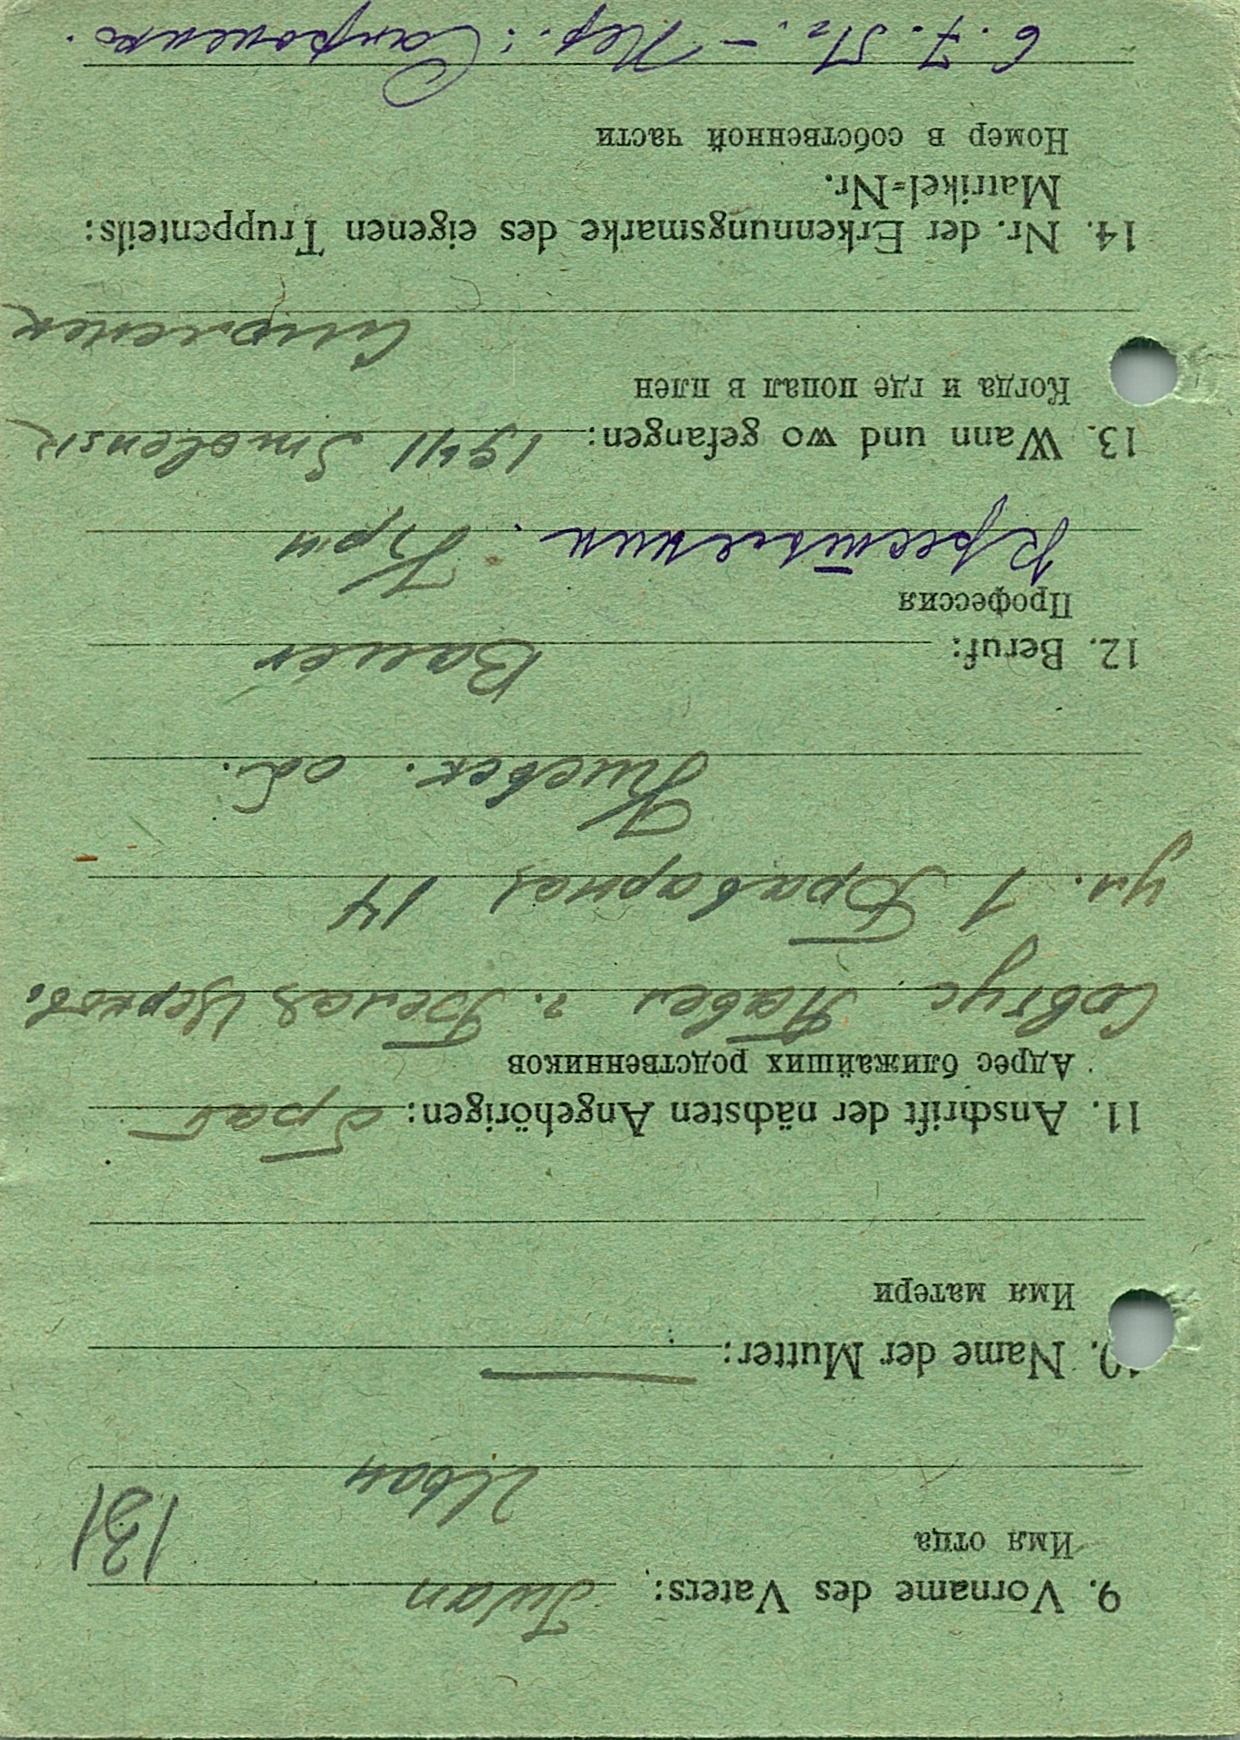 9. Vorname des Vaters: Iwan
Имя отца
131
Иван
10. Name der Mutter: —
Имя матери
11. Anschrift der nächsten Angehörigen: брат
Адрес ближайших родственников
Совгус Павел г. Белая Церковь.
ул. 1 Браварная 14
Киевск. об.
12. Beruf: Bauer
Профессия
Крестьянин.
13. Wann und wo gefangen: 1941 Smolensk
Когда и где попал в плен
Смоленск
14. Nr. der Erkennungsmarke des eigenen Truppenteils:
Matrikel=Nr.
Номер в собственной части
6. 7. 51 г. – Пер.: Сапроненко.